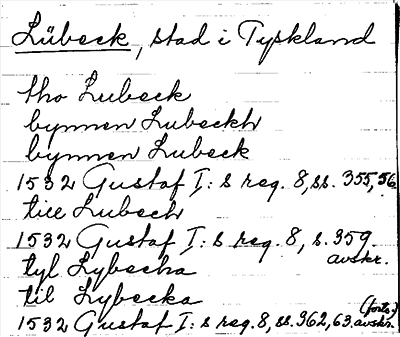 Lübeck, stad i Tyskland
tho Lubeck
bynnen Lubeckh
bynnen Lubeck
1532 Gustaf I:s reg. 8, ss. 355, 56
till Lubech
1532 Gustaf I:s reg. 8, s. 359.
avskr.
tyl Lybecha
til Lybecka
(forts.)
1532 Gustaf I:s reg. 8, ss. 362, 63. avskr.